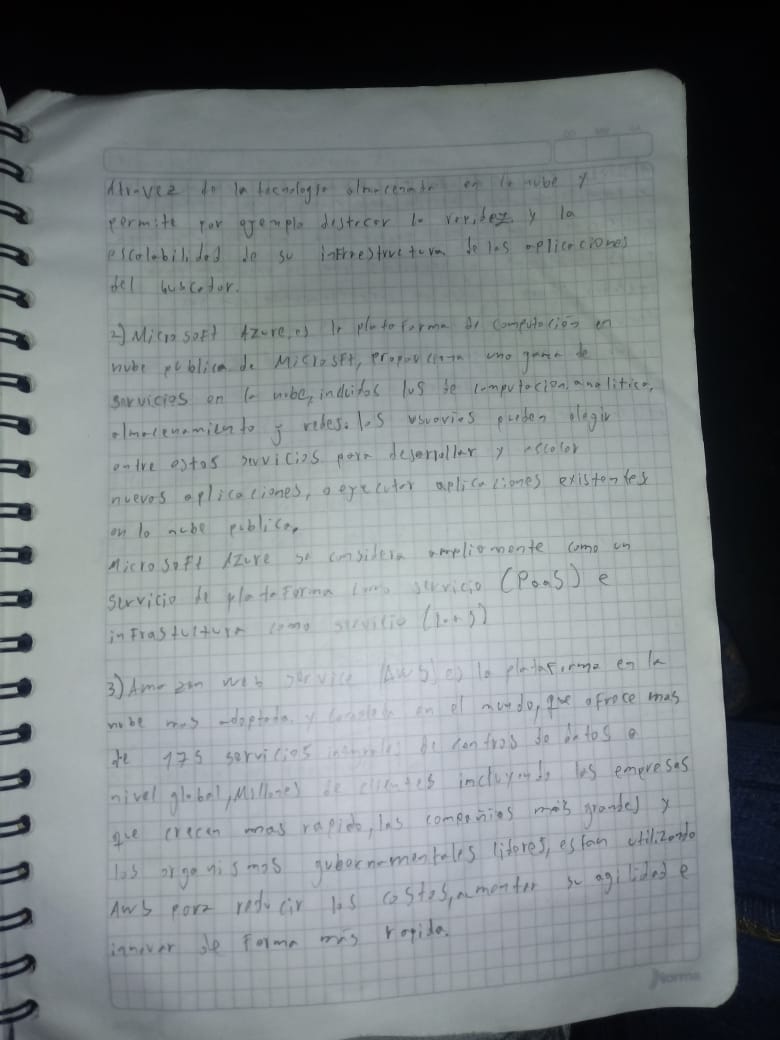 Atravez de la tecnologia almacenada en la nube y
permite por ejemplo destacar la  y la
escalabilidad de su infraestructura de las aplicaciones
del buscador.
2) Microsoft Azure, es la plataforma de computación en
nube publica de Microsft, proporciona una gama de
servicios en la nube, incluidos los de computacion, analitica,
almacenamiento y redes. los usuarios pueden elegir
entre estos servicios para desarrollar y escalar
nuevos aplicaciones, o ejecutar aplicaciones existentes
en la nube publica.
Microsoft Azure se considera ampliamente como un
servicio de plataforma como servicio (PaaS) e
infrastultura como servicio (IaaS)
3) Amazon web service (AWS) es la plataforma en la
nube mas adoptada y completa en el mundo, que ofroce mas
de 175 servicios integrales de centros de datos a
nivel global, Millones de clientes incluyendo las empresas
que crecen mas rapido, las compañias más grandes y
los organismos gubernamentales lideres, estan utilizando
AWS para reducir los costos, aumentar su agilidad e
innovar de Forma más rapida.
Norma